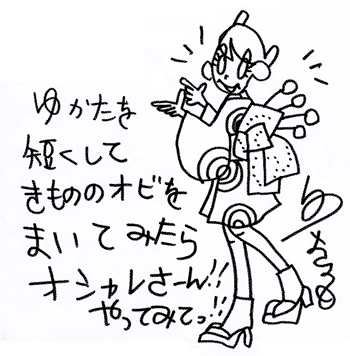 ゆかたを
短くして
きもののオビを
まいてみたら
オシャレさーん!!
やってみてっ!!